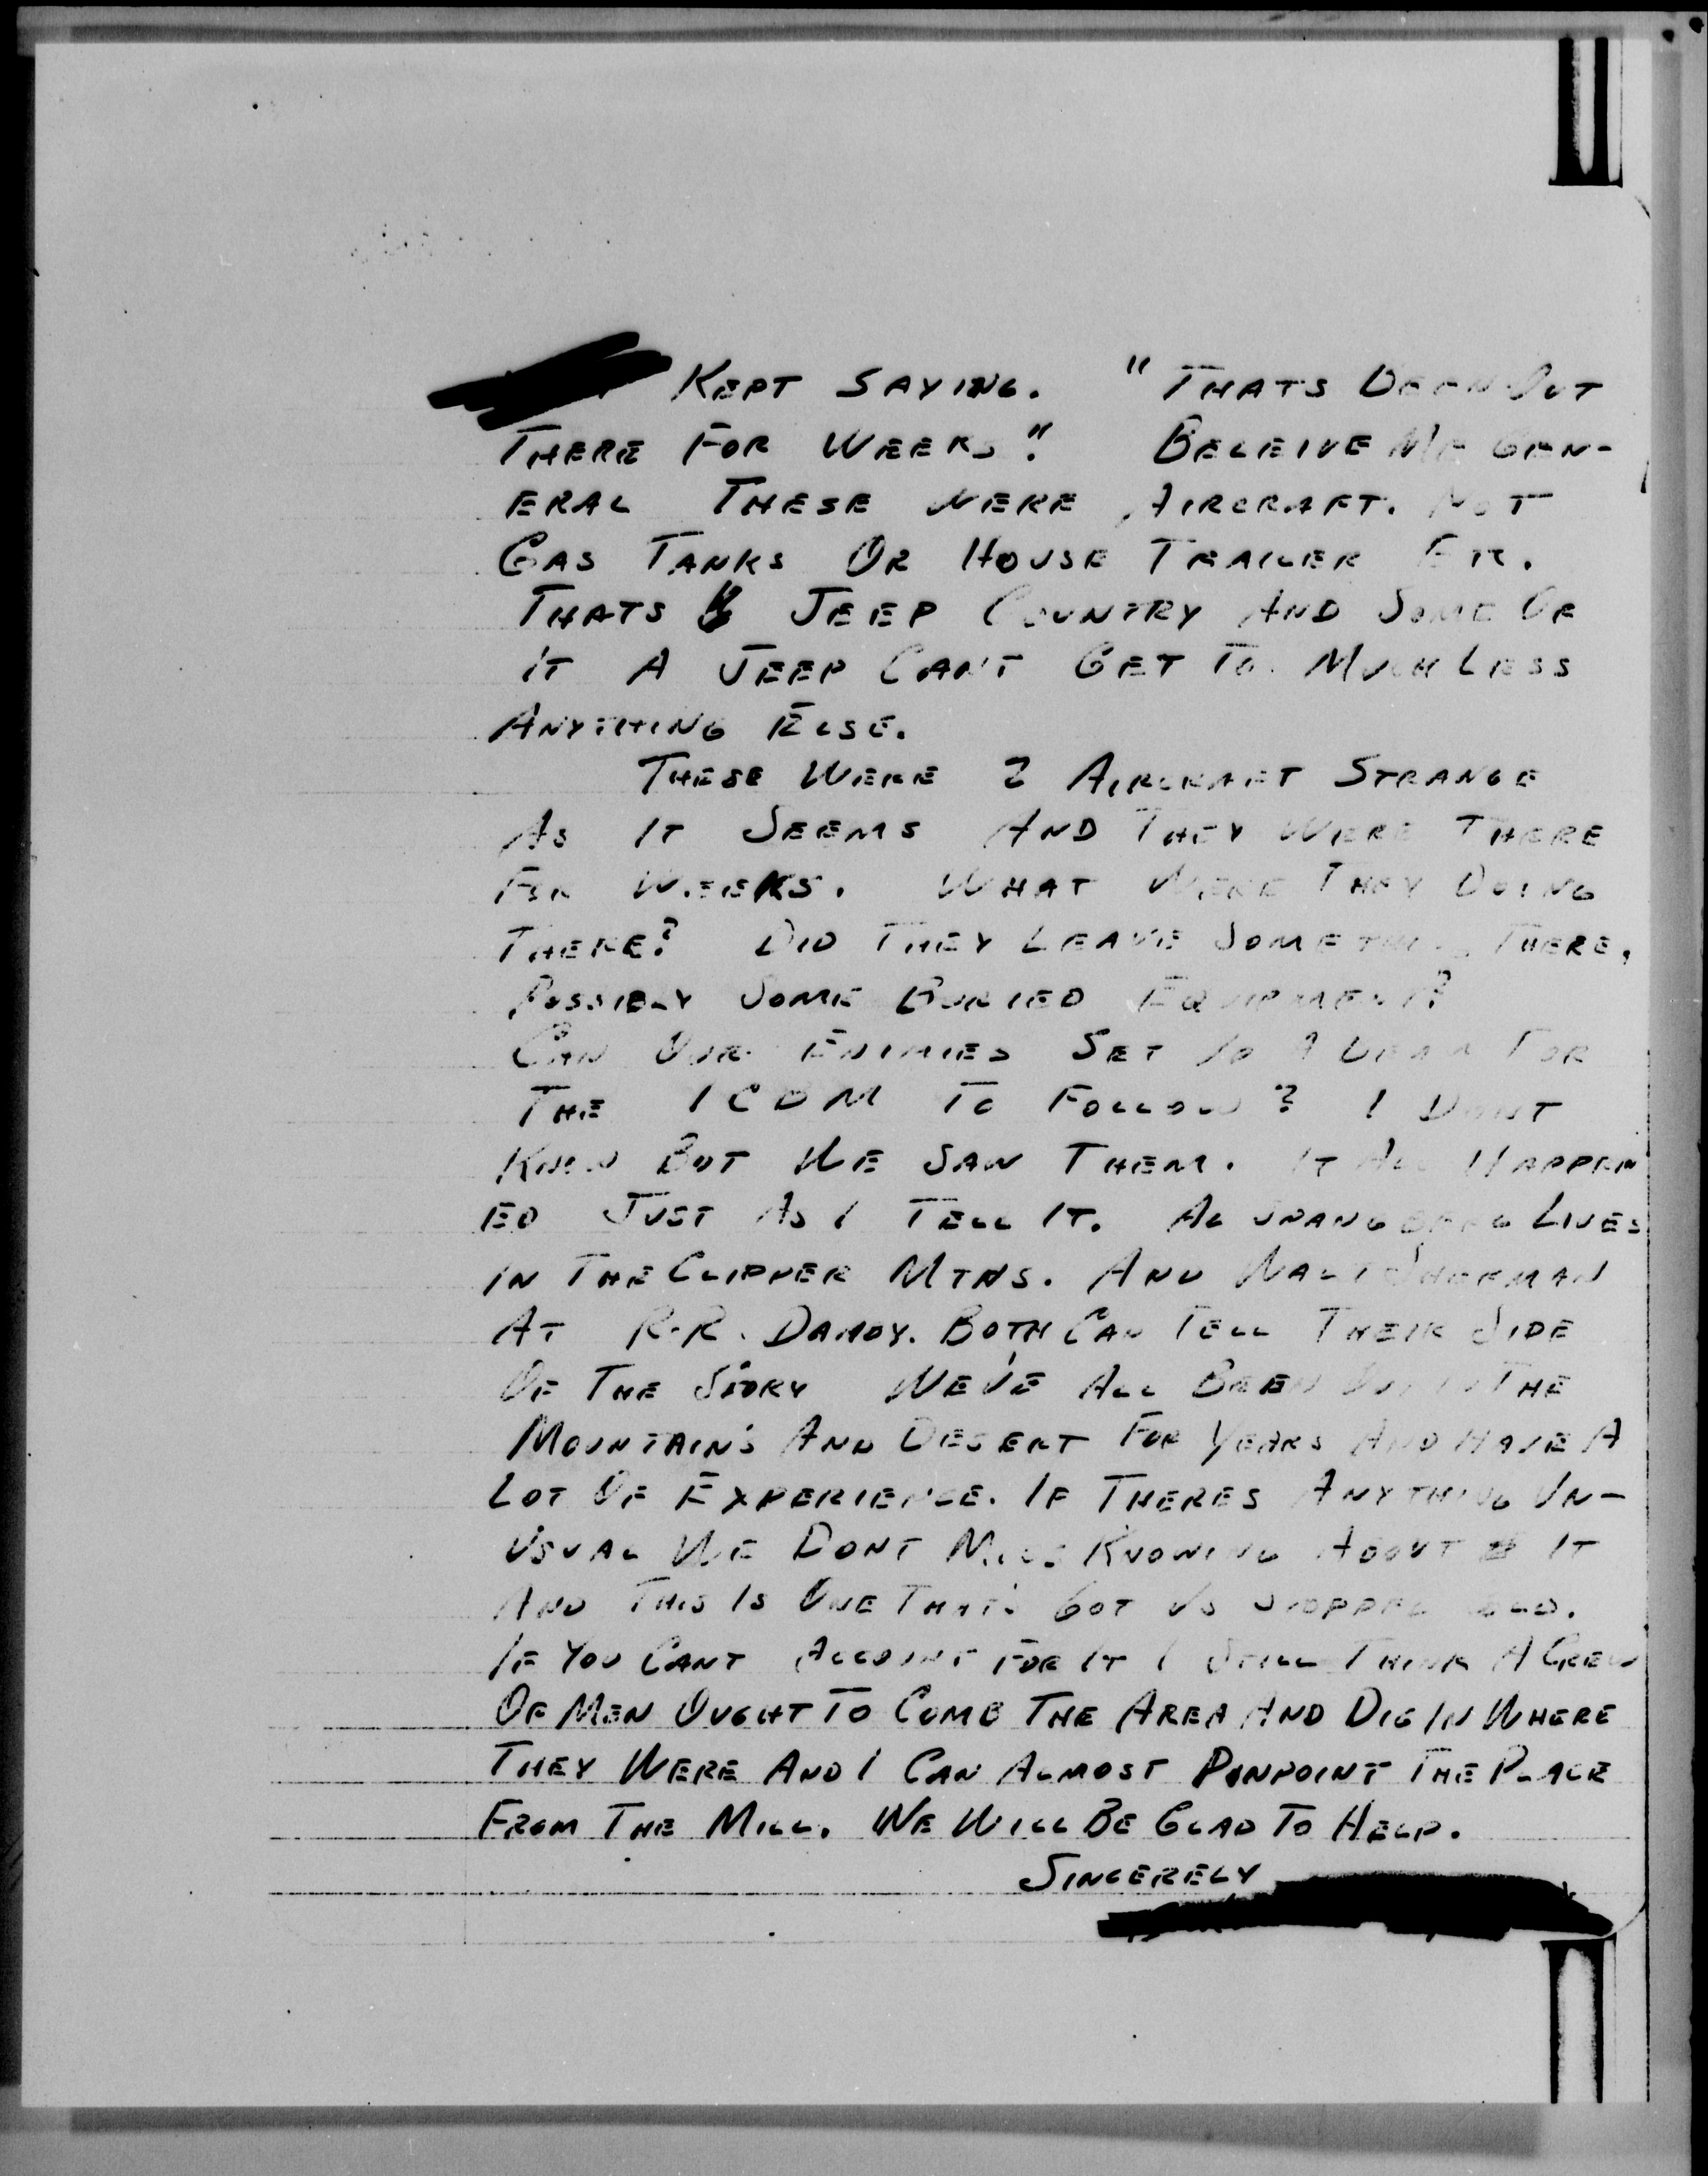 KEPT SAYING. "THATS BEEN OUT
THERE FOR WEEKS". BELEIVE ME GEN-
ERAL THESE WERE AIRCRAFT. NOT
GAS TANKS OR HOUSE TRAILER ETC.
THATS JEEP COUNTRY AND SOME OF
IT A JEEP CANT GET TO. MUCH LESS
ANYTHING ELSE.
THESE WERE 2 AIRCRAFT STRANGE
AS IT SEEMS AND THEY WERE THERE
FOR WEEKS. WHAT WERE THEY DOING
THERE? DID THEY LEAVE SOMETHING THERE,
POSSIBLY SOME BURIED EQUIPMENT?
CAN OUR ENIMIES SET UP A BEAM FOR
THE ICBM TO FOLLOW? I DONT
KNOW BUT WE SAW THEM. IT ALL HAPPEN
ED JUST AS I TELL IT. AL LIVES
IN THE CLIPPER MTNS. AND WALT SHERMAN
AT R.R. DANBY. BOTH CAN TELL THEIR SIDE
OF THE STORY WE'VE ALL BEEN OUT IN THE
MOUNTAIN'S AND DESERT FOR YEARS AND HAVE A
LOT OF EXPERIENCE. IF THERES ANYTHING UN-
USUAL WE DONT MISS KNOWING ABOUT IT
AND THIS IS ONE THAT'S GOT US STOPPED COLD.
IF YOU CANT ACCOUNT FOR IT I STILL THINK A CREW
OF MEN OUGHT TO COMB THE AREA AND DIG IN WHERE
THEY WERE AND I CAN ALMOST PINPOINT THE PLACE
FROM THE MILL. WE WILL BE GLAD TO HELP.
SINCERELY